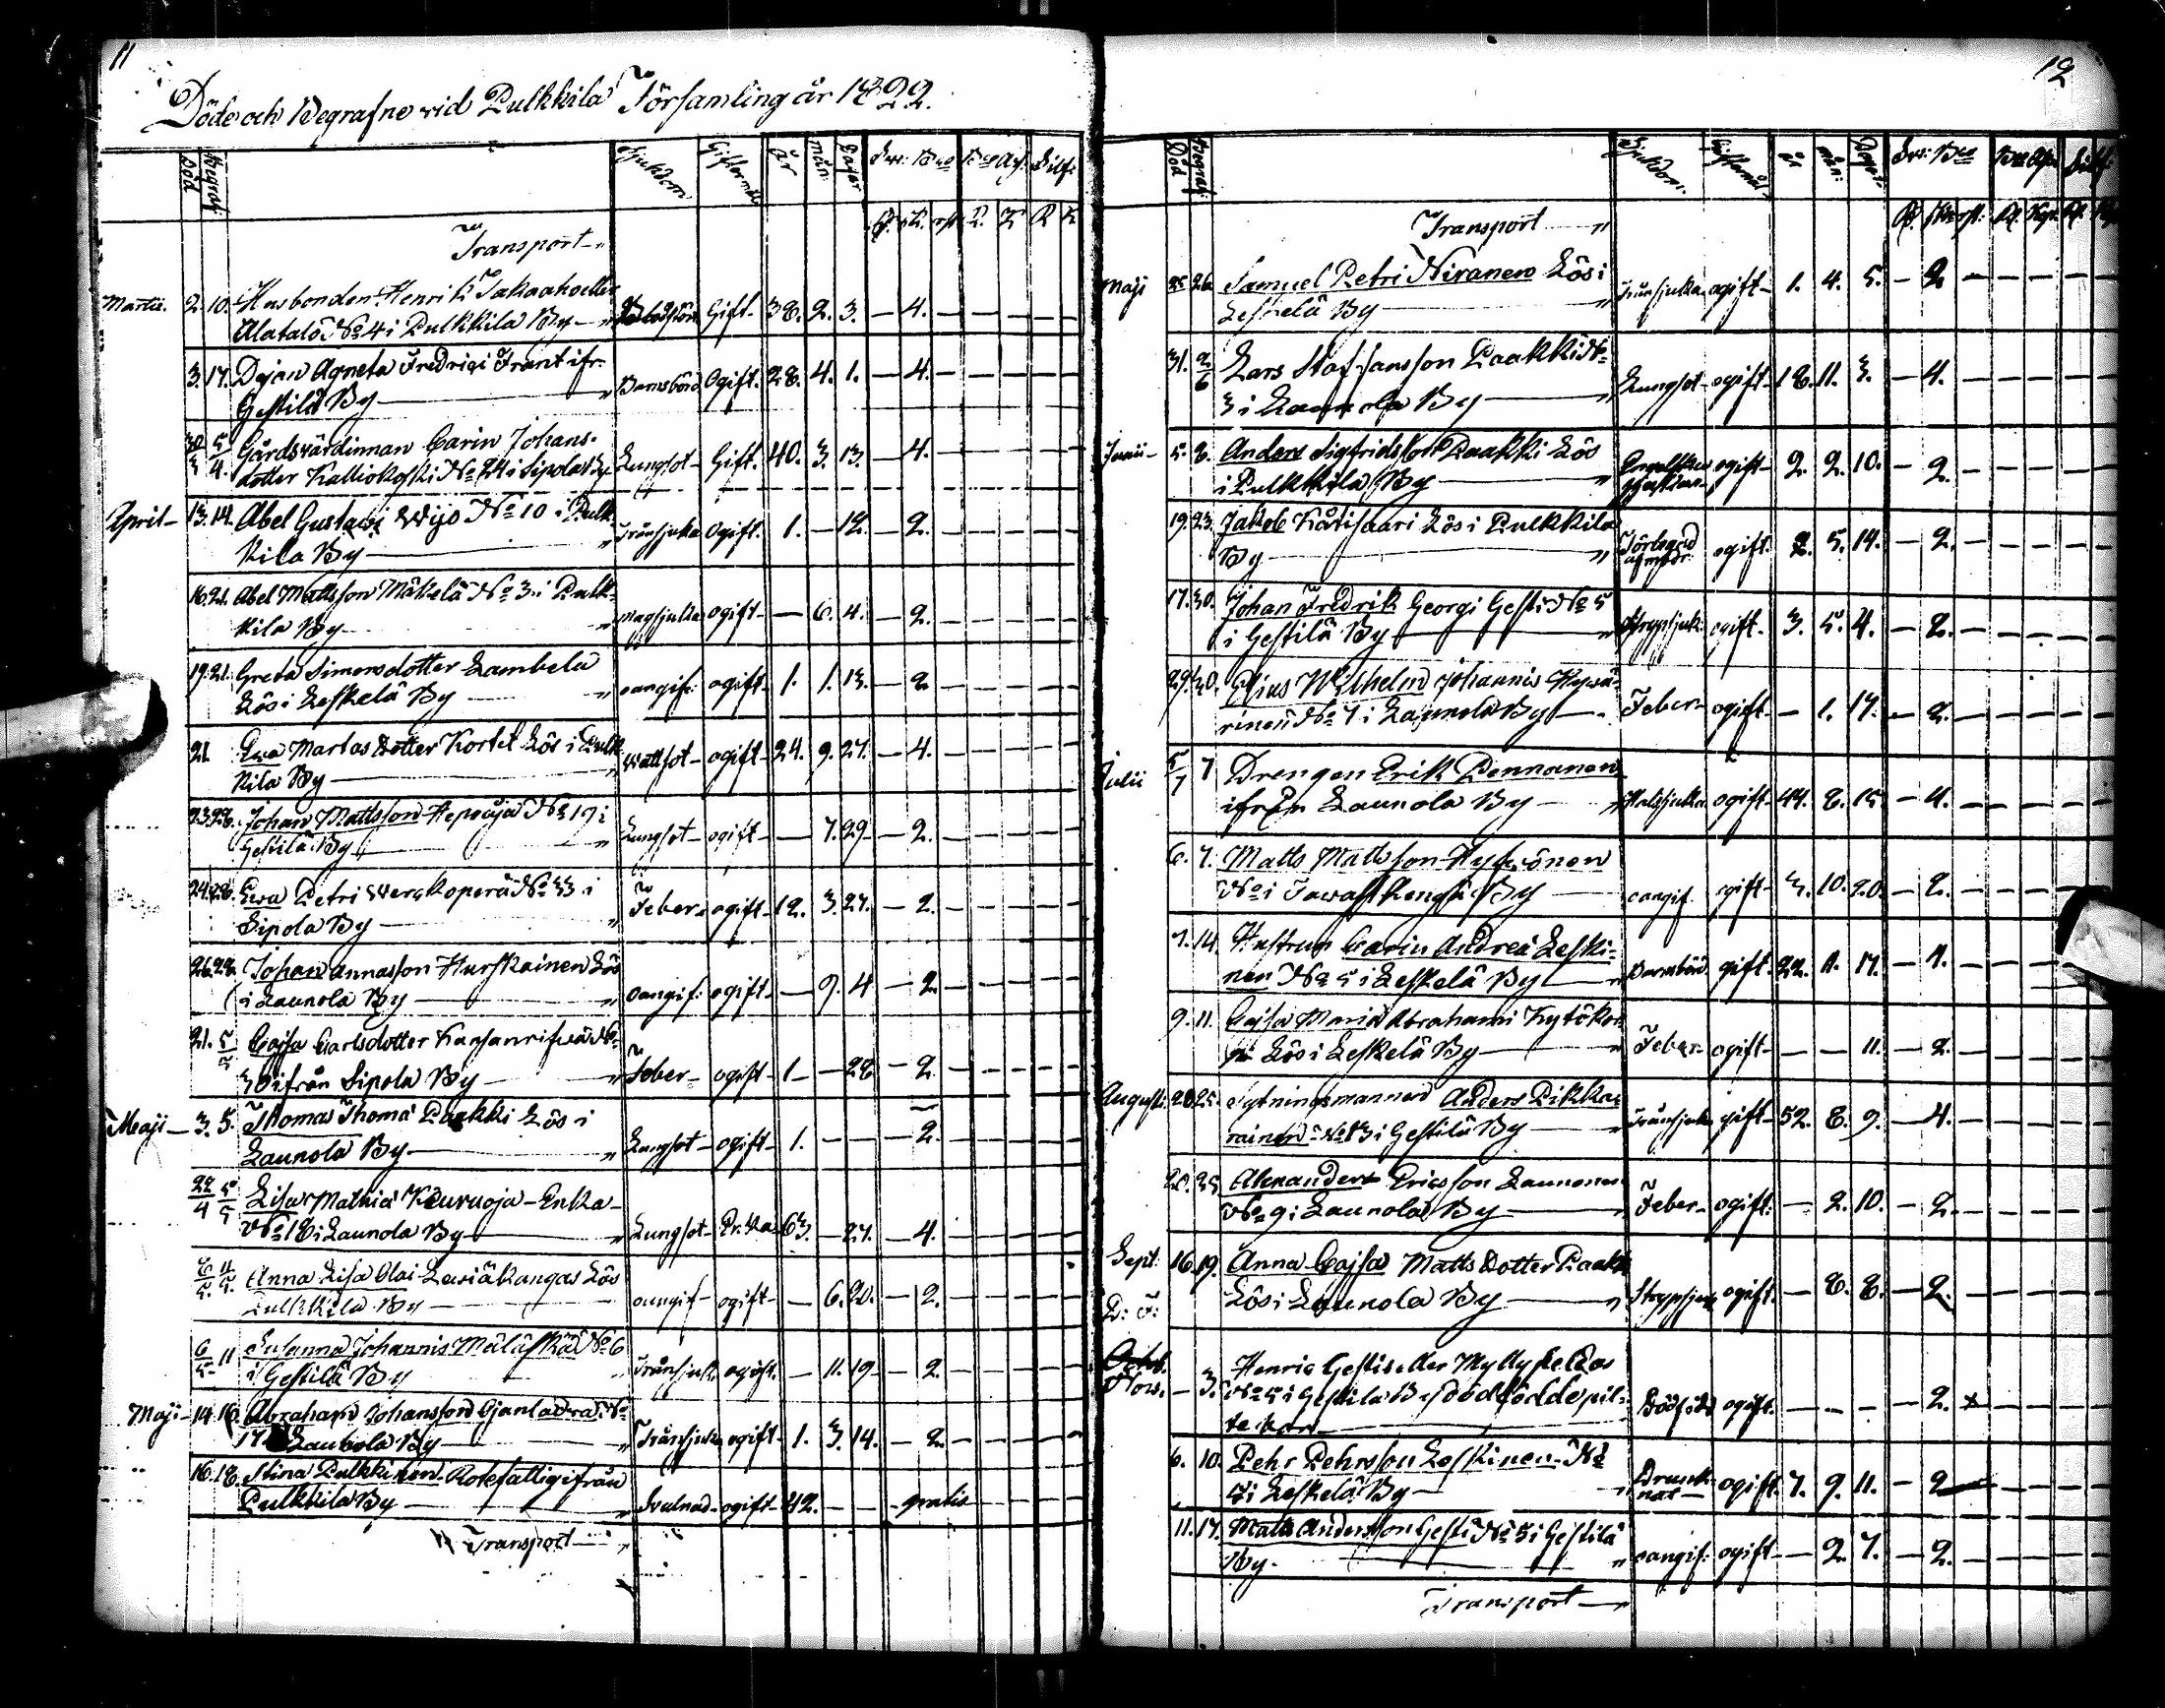 11
Döde och Begrafne vid Pulkkila Församling år 1822.
Död Begraf: Sjukdom Giftermål år mån: Dagar
Transport
Martii. 2. 10. Husbonden Henrik
Alatalo No 4 i Pulkkila By Gift. 38. 2. 3. — 4. — — — — —
3. 17. Dejan Agneta Fredrici Frant ifr.
Gestilä By Barnsbörd Ogift. 28. 4. 1. — 4. — — — — —
30/3 5/4. Gårdsvärdinnan Carin Johans-
dotter Kalliokoski No 24 i Sipola By Lungsot Gift. 40. 3. 13. — 4. — — — — —
April 13. 14. Abel Gustavi Wijo No 10 i Pulk-
kila By Trånsjuka Ogift. 1. — 12. — 2. — — — — —
16. 21. Abel Mattsson Mäkelä No 3 i Pulk-
kila By Magsjuka ogift — 6. 4. — 2. — — — — —
19. 21. Greta Simonsdotter Lambela
Lös i Leskelä By oangif: ogift 1. 1. 13. — 2 — — — — —
21. Ewa Martasdotter Kortet Lös i Pulk
kila By Wattsot ogift 24. 9. 27. — 4. — — — — —
23. 28. Johan Mattsson Hepooja No 19 i
Gestilä By Lungsot ogift — 7. 29 — 2. — — — — —
24. 28. Ewa Petri No 33 i
Sipola By Feber ogift 12. 3. 27. — 2. — — — — —
26. 28. Johan Annasson Hurskainen Lös
i Launola By oangif: ogift — 9. 4 — 2. — — — — —
21. 5/5 Cajsa Carlsdotter No
30 ifrån Sipola By Feber ogift 1 — 28 — 2. — — — — —
Maji 3. 5. Thomas Thomæ Paakki Lös i
Launola By Lungsot ogift 1. — — — 2. — — — — —
22/4 5/5 Lisa Mathiæ Keuruoja Enka
No 18 i Launola By Lungsot 63. — 27. — 4. — — — — —
Anna Lisa Olai Leviäkangas Lös
Pulkkila By oangif ogift — 6. 20. — 2. — — — — —
6/5 11 Susanna Johannis Mäläskä No 6
i Gestilä By Trånsjuka ogift. — 11. 19 — 2. — — — — —
Maji 14. 16. Abraham Johansson No
17 Launola By Trånsjuka ogift 1. 3. 14. — 2. — — — — —
16. 18. Stina Pulkkinen Rotefattig ifrån
Pulkkila By Svulnad ogift 42. — — — gratis — — —
Transport
12
Död Begraf: Sjukdom: Giftermål år mån: Dagar:
Transport
Maji 25 26. Samuel Petri Niranen Lös i
Leskelä By Trånsjuka ogift 1. 4. 5. — 2 — — — — —
31. 2/6 Lars Staffansson Paakki No
3 i Launola By Lungsot ogift 18. 11. 3. — 4. — — — — —
Junii 5. 8. Anders Sigfridsson Paakki Lös
i Pulkkila By Engelska sjukan ogift 2. 2. 10. — 2. — — — — —
19. 23. Jakob Lös i Pulkkila
By ogift. 2. 5. 14. — 2. — — — — —
17. 30. Johan Fredrik Georgi Gesti No 5
i Gestilä By Strypsjuk: ogift. 3. 5. 4. — 2. — — — — —
29. 30. Elias Wilhelm Johannis Hyvä-
rinen No 7 i Launola By Feber ogift — 1. 17. — 2. — — — — —
Julii 5/7 7 Drengen Erik Pennanen
ifrån Launola By Halssjuka ogift 44. 8. 15. — 4. — — — — —
6. 7. Matts Mattsson
No i By oangif. ogift 3. 10. 20. — 2. — — — — —
7. 14. Hustrun Carin Andreæ Leski-
nen No 5 i Leskelä By Barnsbörd gift 22. 11. 17. — 4. — — — — —
9. 11. Cajsa Maria Abrahami Kytökor
pi Lös i Leskelä By Feber ogift — — 11. — 2. — — — — —
Augusti 20. 25. Anders Pikka-
rainen No 13 i Gestilä By Trånsjuka gift 52. 8. 9. — 4. — — — — —
25. Alexander Ericsson Launonen
No 9 i Launola By Feber ogift: — 2. 10. — 2. — — — — —
Sept: 16. 19. Anna Cajsa Mattsdotter Paakk
Lös i Launola By Strypsjuk ogift. — 8. 8. — 2. — — — — —
D: F:
Octob.
Nov. — 3. Henric Gestis eller Myllykekos
No 5 i Gestila By dödfödde pil-
te barn Dödföd ogift. — — — — 2. x — — — —
6. 10. Pehr Pehrsson Leskinen No
5 i Leskelä By Drunk-
nat ogift 7. 9. 11. — 2 — — — — —
11. 17. Matts Andersson Gesti No 5 i Gestilä
By. oangif: ogift — 2. 7. — 2. — — — — —
Transport